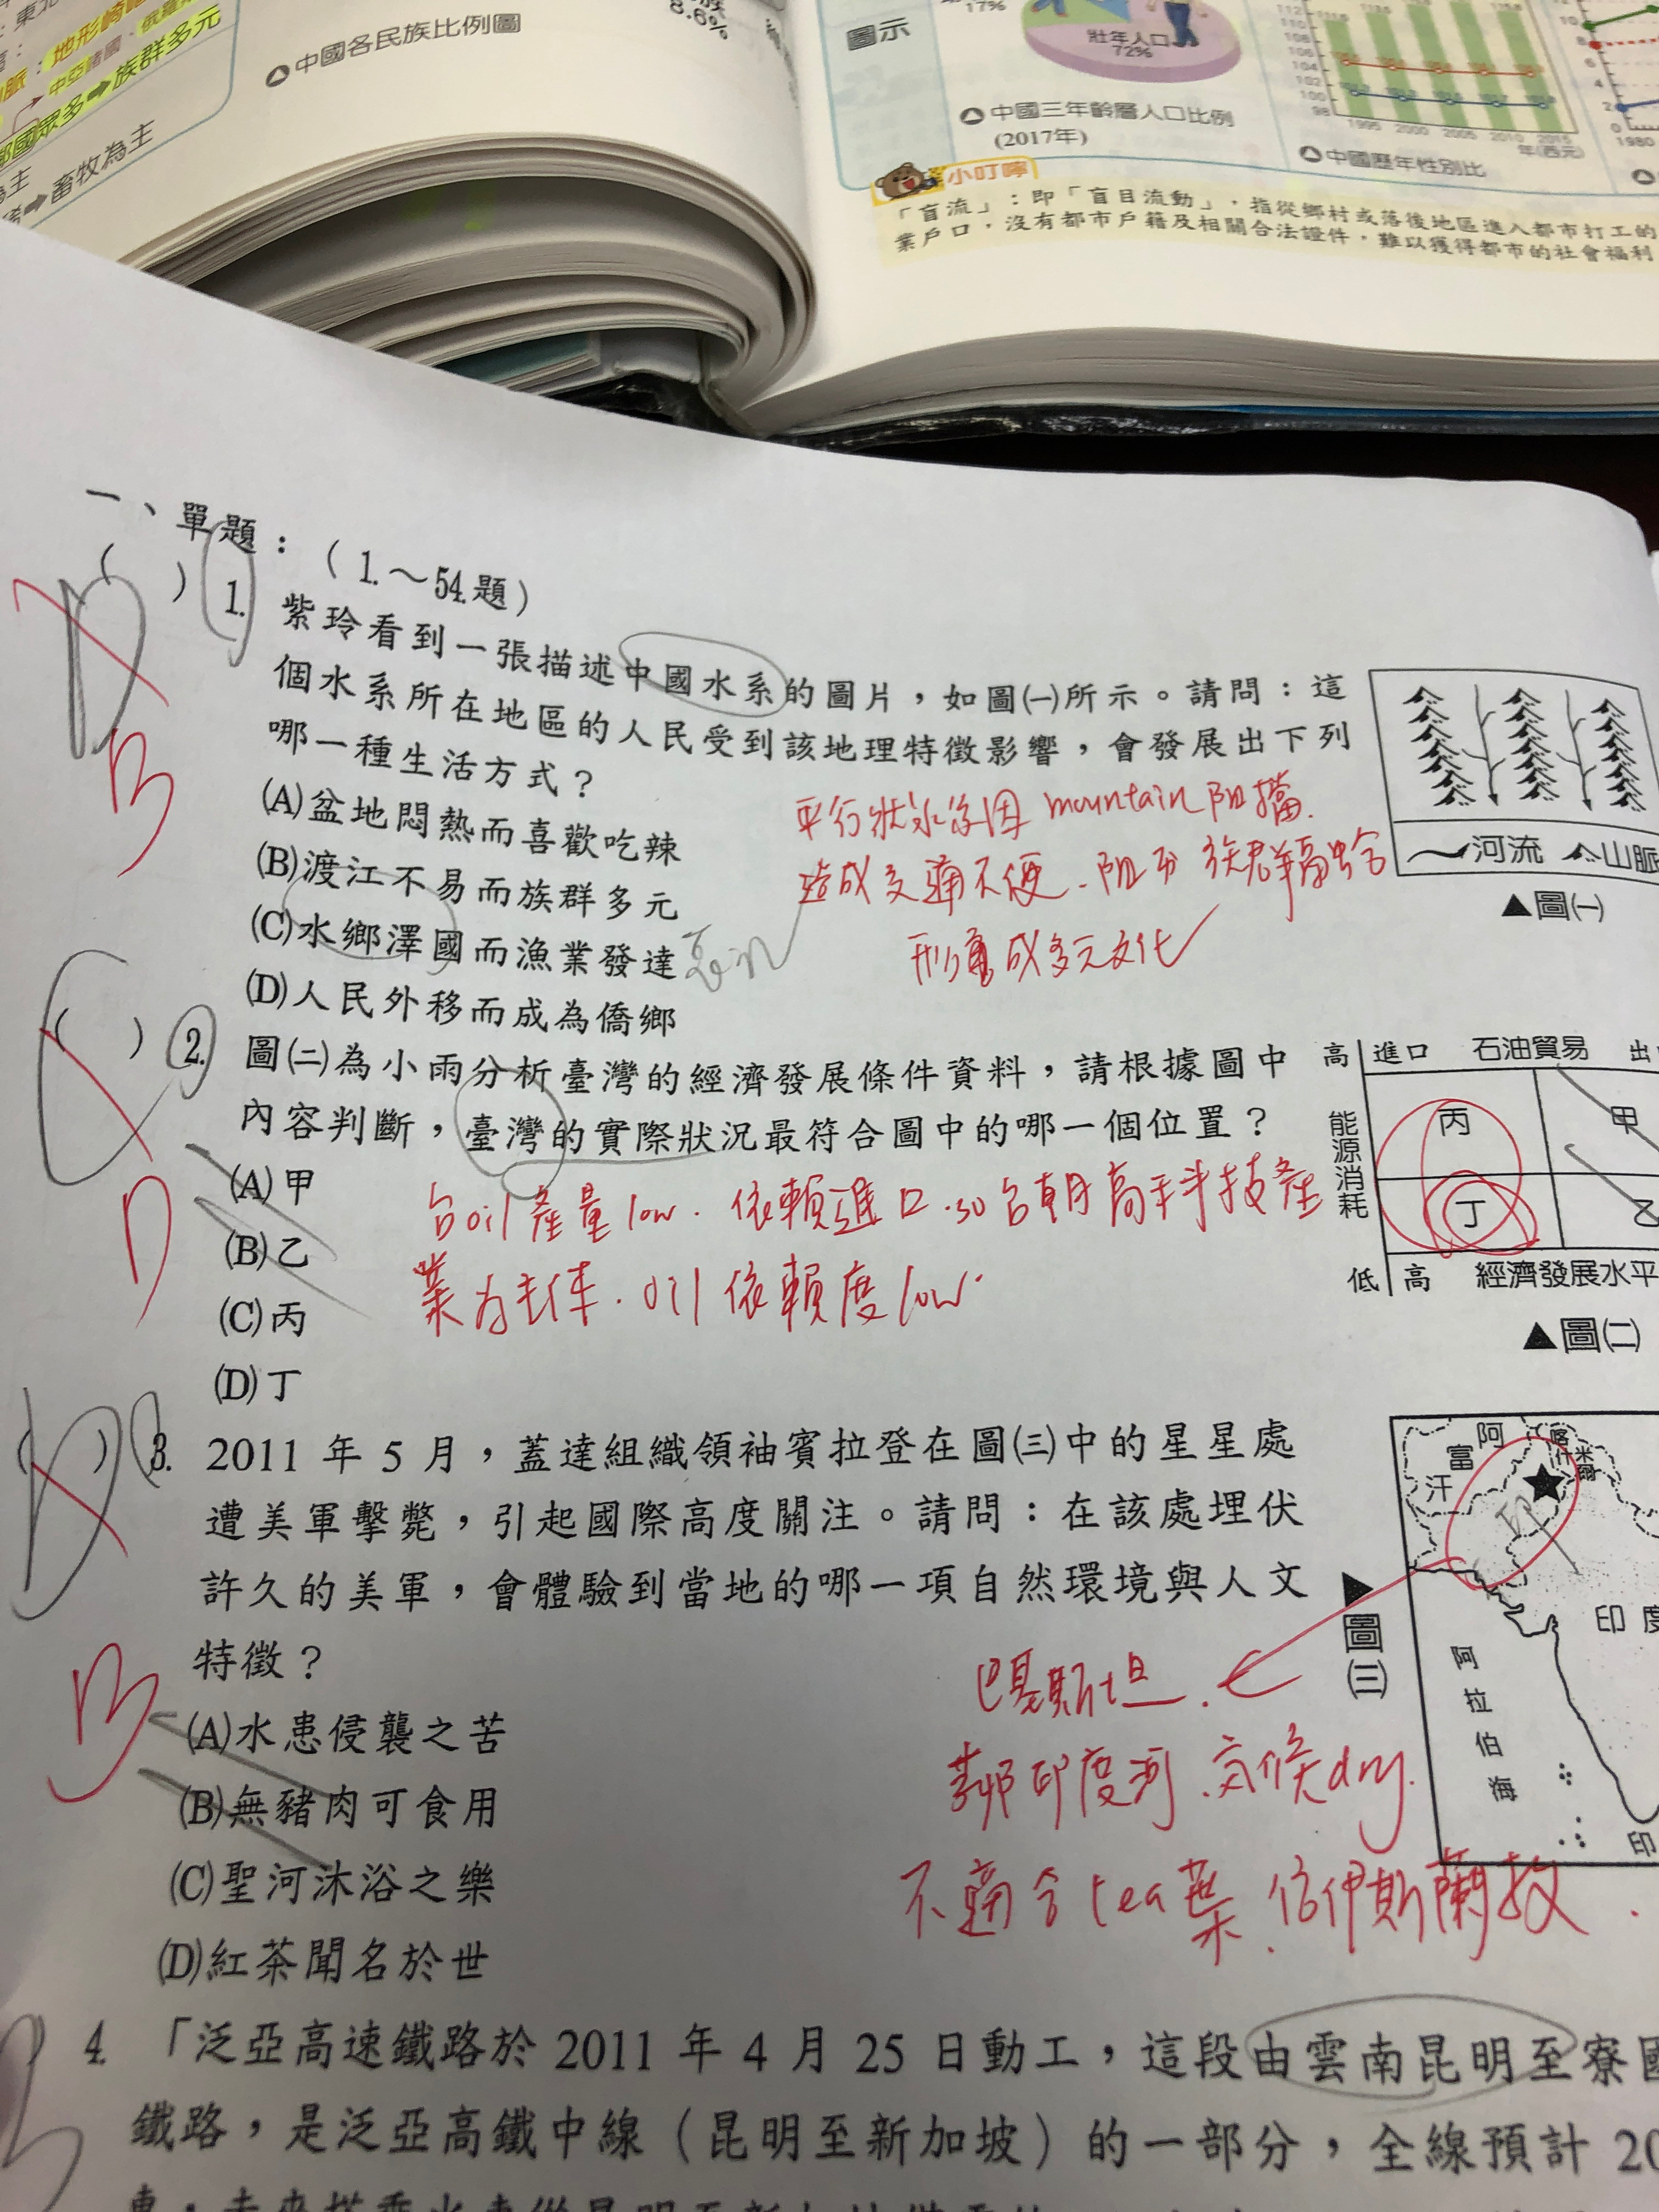 東北
地形崎嶇
脈：
中亞諸國、俄羅
鄰國眾多➡族群多元
為主
➡畜牧為主
中國各民族比例圖
8.6%
圖示
17%
壯年人口
72%
中國三年齡層人口比例
(2017年)
112
110
108
106
104
102
100
98
1995 2000 2005 2010 2015
年(西元)
中國歷年性別比
10
8
6
4
2
0
1980
小叮嚀
「盲流」：即「盲目流動」，指從鄉村或落後地區進入都市打工的
業戶口，沒有都市戶籍及相關合法證件，難以獲得都市的社會福利
一、單題：（1.～54.題）
( ) 1. 紫玲看到一張描述中國水系的圖片，如圖㈠所示。請問：這
個水系所在地區的人民受到該地理特徵影響，會發展出下列
哪一種生活方式？
(A)盆地悶熱而喜歡吃辣
(B)渡江不易而族群多元
(C)水鄉澤國而漁業發達
(D)人民外移而成為僑鄉
D
B
平行狀水系因 mountain 阻擋.
造成交通不便、阻礙族群融合
形成多元文化
河流 山脈
▲圖㈠
( ) 2. 圖㈡為小雨分析臺灣的經濟發展條件資料，請根據圖中
內容判斷，臺灣的實際狀況最符合圖中的哪一個位置？
(A)甲
(B)乙
(C)丙
(D)丁
C
D
台oil產量low. 依賴進口.so台朝高科技產
業為主体. oil 依賴度low.
高 進口 石油貿易 出
能源消耗
丙 甲
丁 乙
低 高 經濟發展水平
▲圖㈡
( ) 3. 2011 年 5 月，蓋達組織領袖賓拉登在圖㈢中的星星處
遭美軍擊斃，引起國際高度關注。請問：在該處埋伏
許久的美軍，會體驗到當地的哪一項自然環境與人文
特徵？
(A)水患侵襲之苦
(B)無豬肉可食用
(C)聖河沐浴之樂
(D)紅茶聞名於世
D
B
巴基斯坦.
鄰印度河.氣候dry.
不適合tea葉.信伊斯蘭教.
阿富汗
喀什米爾
印
印度
阿拉伯海
印
▲圖㈢
4. 「泛亞高速鐵路於 2011 年 4 月 25 日動工，這段由雲南昆明至寮國
鐵路，是泛亞高鐵中線（昆明至新加坡）的一部分，全線預計 20